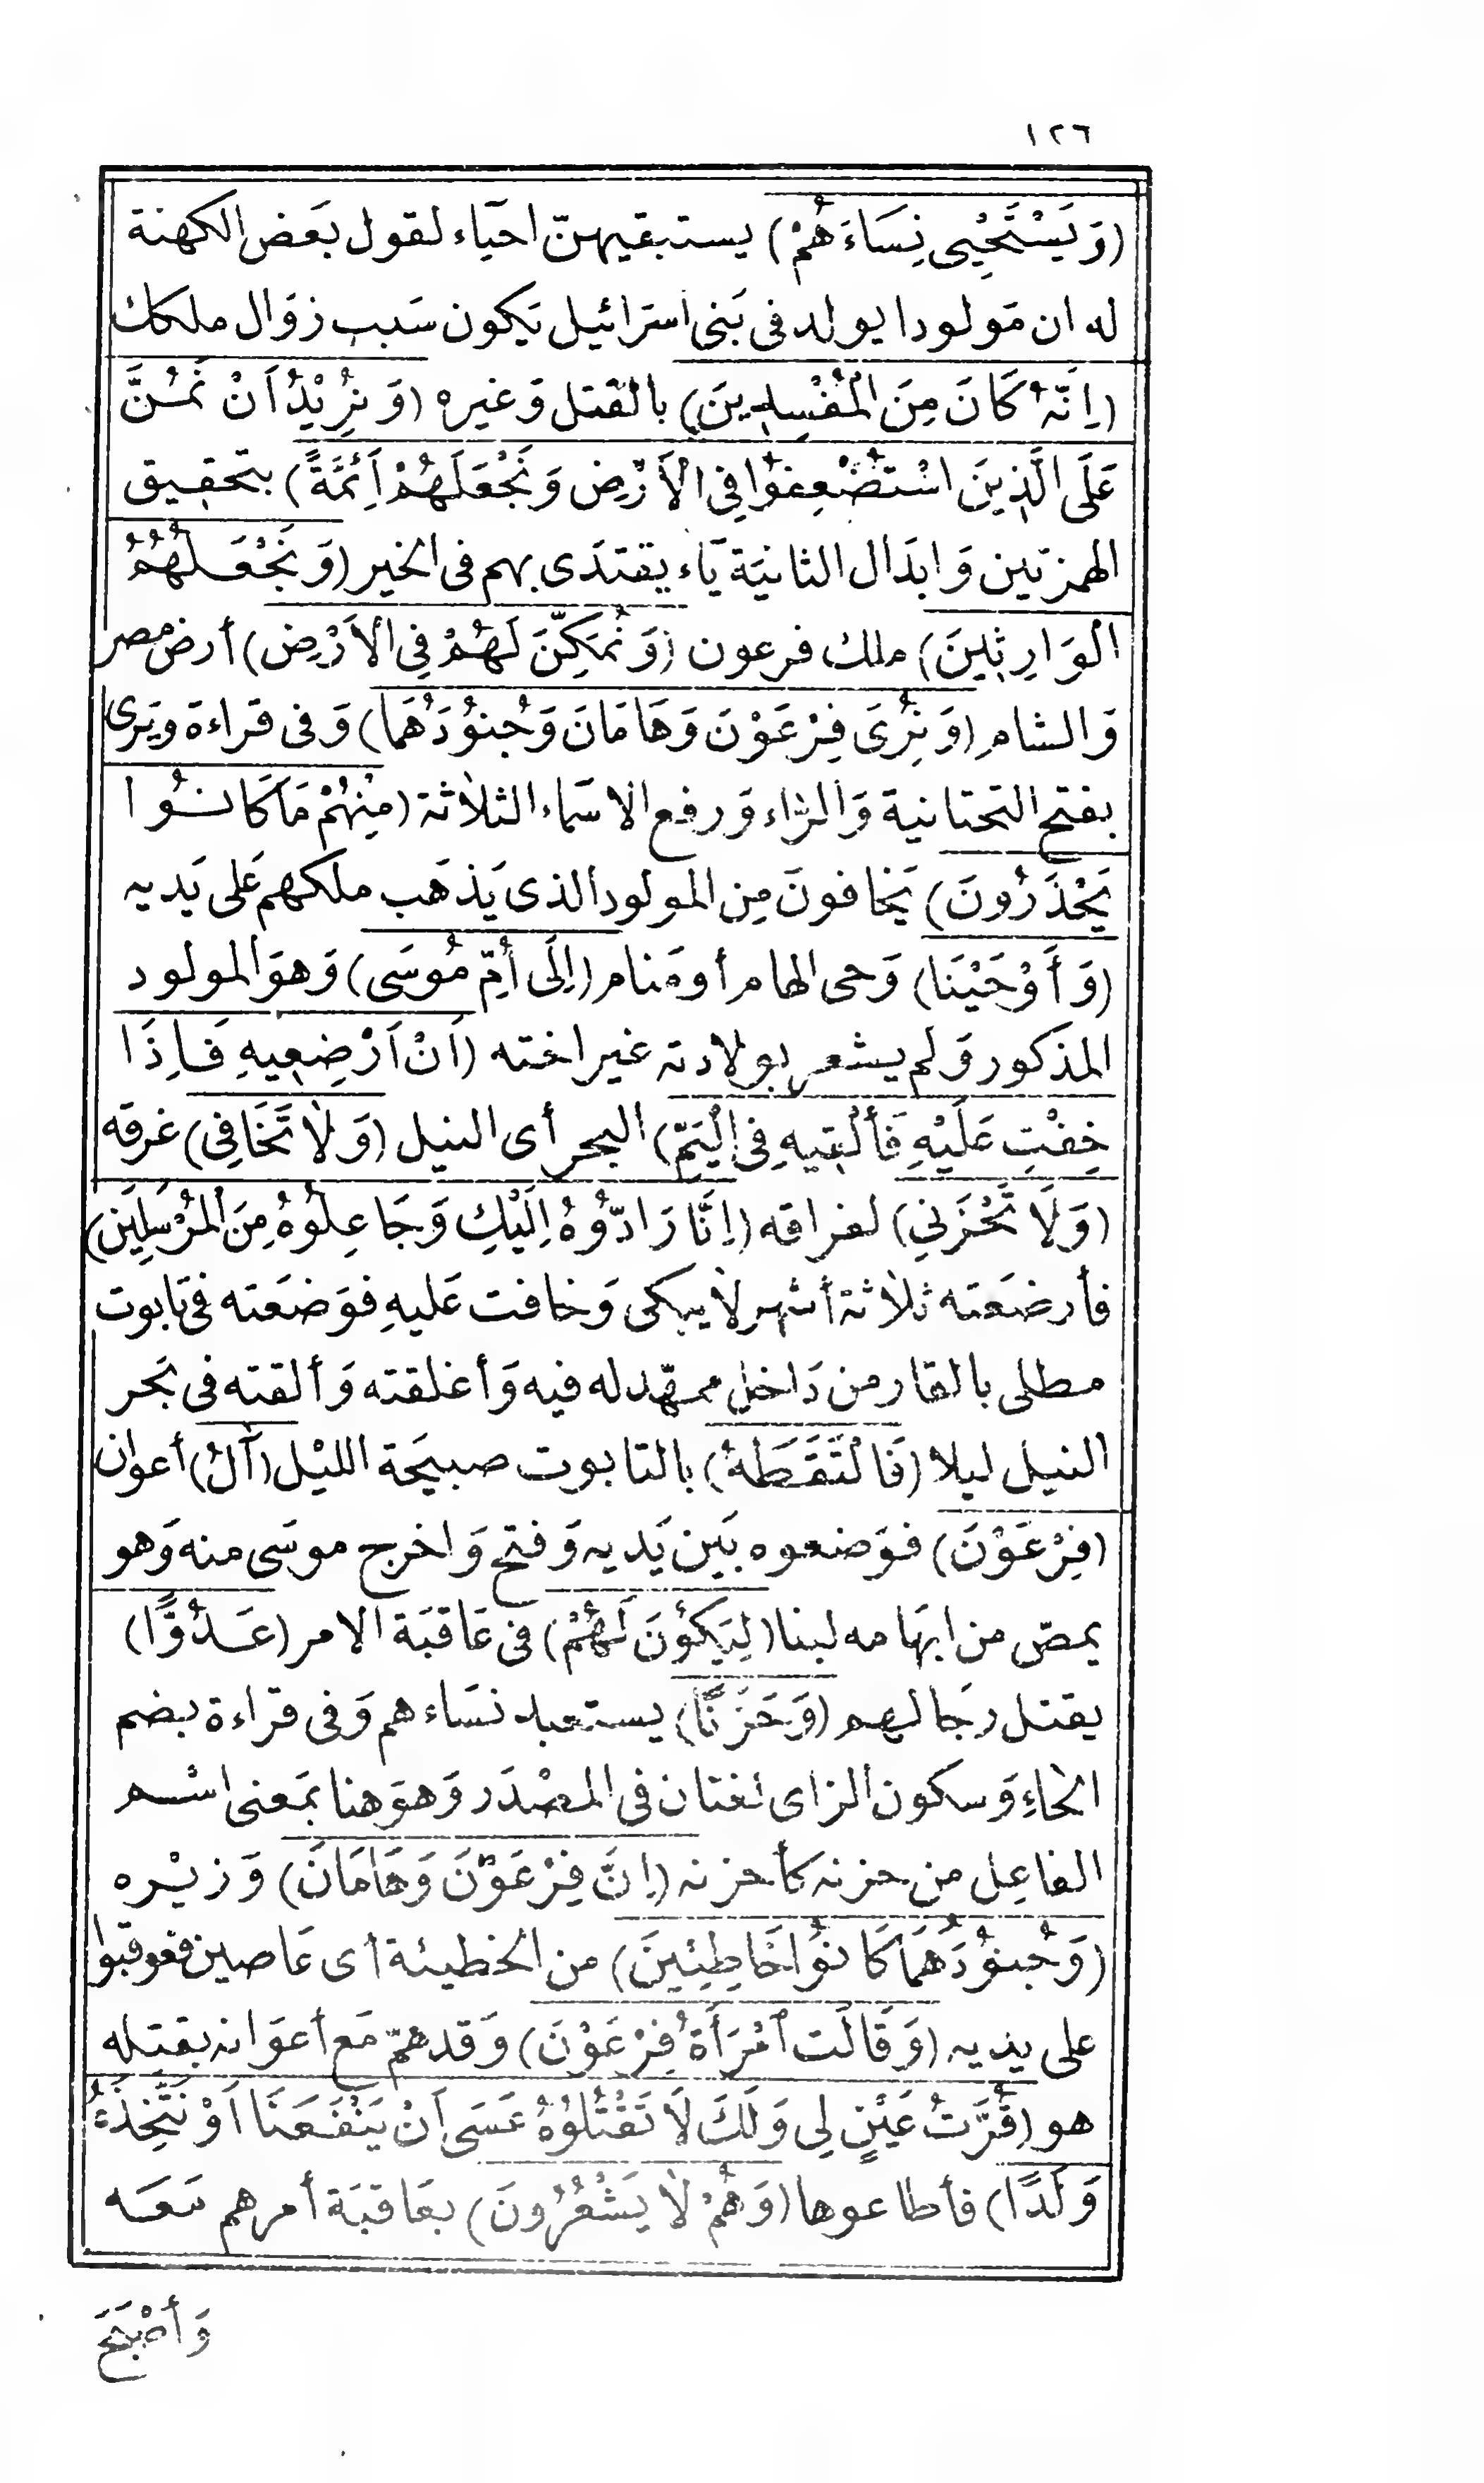 ١٢٦
(وَيَسْتَحْيِى نِسَاءَهُمْ) يستبقيهنّ احيَاء لقول بَعض الكهنة
له ان مَولودا يولد فى بَنى اسرَائيل يَكون سَبب زوَال ملكك
(اِنَّهُ كَانَ مِنَ الْمُفْسِدِينَ) بالقتل وَغيره (وَنُرِيْدُ اَنْ نَمُنَّ
عَلَى الَّذِينَ اسْتُضْعِفُوا فِى الْاَرْضِ وَنَجْعَلَهُمْ اَئِمَّةً) بتحقيق
الهمزتين وَابدَال الثانيَة يَاء يقتدَى بهم فى الخير (وَنَجْعَـلَهُمُ
الوَارِثِينَ) ملك فرعون (وَنُمَكِّنَ لَهُمْ فِى الْاَرْضِ) أرض مصر
وَالشام (وَنُرِىَ فِرْعَوْنَ وَهَامَانَ وَجُنُوْدَهُمَا) وَفى قراءة ويَرى
بفتح التحتانية وَالرّاء وَرفع الاسمَاء الثلاثة (مِنْهُمْ مَا كَانُوا
يَحْذَرُونَ) يَخافونَ مِن المولود الذى يَذهَب ملكهم عَلى يَديه
(وَأَوْحَيْنَا) وَحى الهام أو مَنام (اِلَى أُمِّ مُوسَى) وَهوَ المولود
المذكور وَلم يشعر بولادته غير اخته (اَنْ اَرْضِعِيهِ فَاِذَا
خِفْتِ عَلَيْهِ فَأَلْقِيهِ فِى الْيَمِّ) البحر أى النيل (وَلَا تَخَافِى) غرقه
(وَلَا تَحْزَنِي) لفراقه (اِنَّا رَادُّوُهُ اِلَيْكِ وَجَاعِلُوْهُ مِنَ الْمُرْسَلِيْنَ)
فأرضعَته ثلاثة أشهر لا يبكى وَخافت عَليهِ فوَضعَته فى تابوت
مطلى بالقار من دَاخل ممهّد له فيه وَأغلقته وَألقته فى بَحر
النيل ليلا (فَالْتَقَطَهُ) بالتابوت صبيحَة الليْل (آلُ) أعوان
(فِرْعَوْنَ) فوَضعوه بَين يَديه وَفتح وَاخرج موسَى منه وَهو
يمصّ من ابهَامه لبنا (لِيَكُوْنَ لَهُمْ) فى عَاقبَة الامر (عَـدُوًّا)
يقتل رجَالهم (وَحَزَنًا) يستعبد نسَاءهم وَفى قراءة بضم
الحاءِ وَسكون الزاى لغتان فى المصْدَر وَهوَ هنا بمَعنى اسْم
الفاعِل من حزنه كأحزنه (اِنَّ فِرْعَوْنَ وَهَامَانَ) وَزيْره
(وَجُنُوْدَهُمَا كَانُوْا خَاطِئِينَ) من الخطيئة أى عَاصين فعوقبوا
على يديه (وَقَالَت امْرَأَةُ فِرْعَوْنَ) وَقد همّ مَع أعوَانه بقتله
هو (قُرَّتُ عَيْنٍ لِى وَلَكَ لَا تَقْتُلُوْهُ عَسَى اَنْ يَنْفَعَنَا اَوْ نَتَّخِذَهُ
وَلَدًا) فأطاعوها (وَهُمْ لَا يَشْعُرُونَ) بعَاقبَة أمرهم مَعَـه
وَأَصْبَحَ